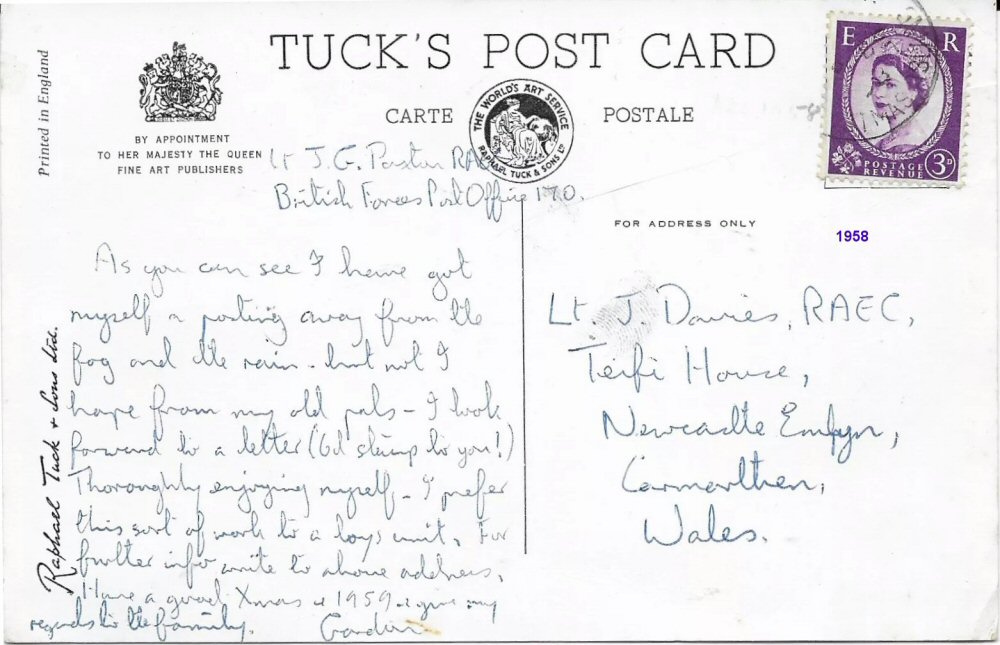 Printed in England
TUCK'S POST CARD
CARTE POSTALE
THE WORLD'S ART SERVICE
RAPHAEL TUCK & SONS LTD
BY APPOINTMENT
TO HER MAJESTY THE QUEEN
FINE ART PUBLISHERS
E R
POSTAGE
REVENUE
3D
Lt J. G. RAEC
British Forces Post Office 170.
FOR ADDRESS ONLY
1958
As you can see I have got
myself a posting away from the
fog and the rain - but not I
hope from my old pals - I look
forward to a letter (6d stamp to you!)
Thoroughly enjoying myself - I prefer
this sort of work to a boys unit. For
further info write to above address.
Have a good Xmas & 1959 & give my
regards to the family. Gordon
Raphael Tuck & Sons Ltd.
Lt. J. Davies, RAEC,
Teifi House,
Newcastle Emlyn,
Carmarthen,
Wales.